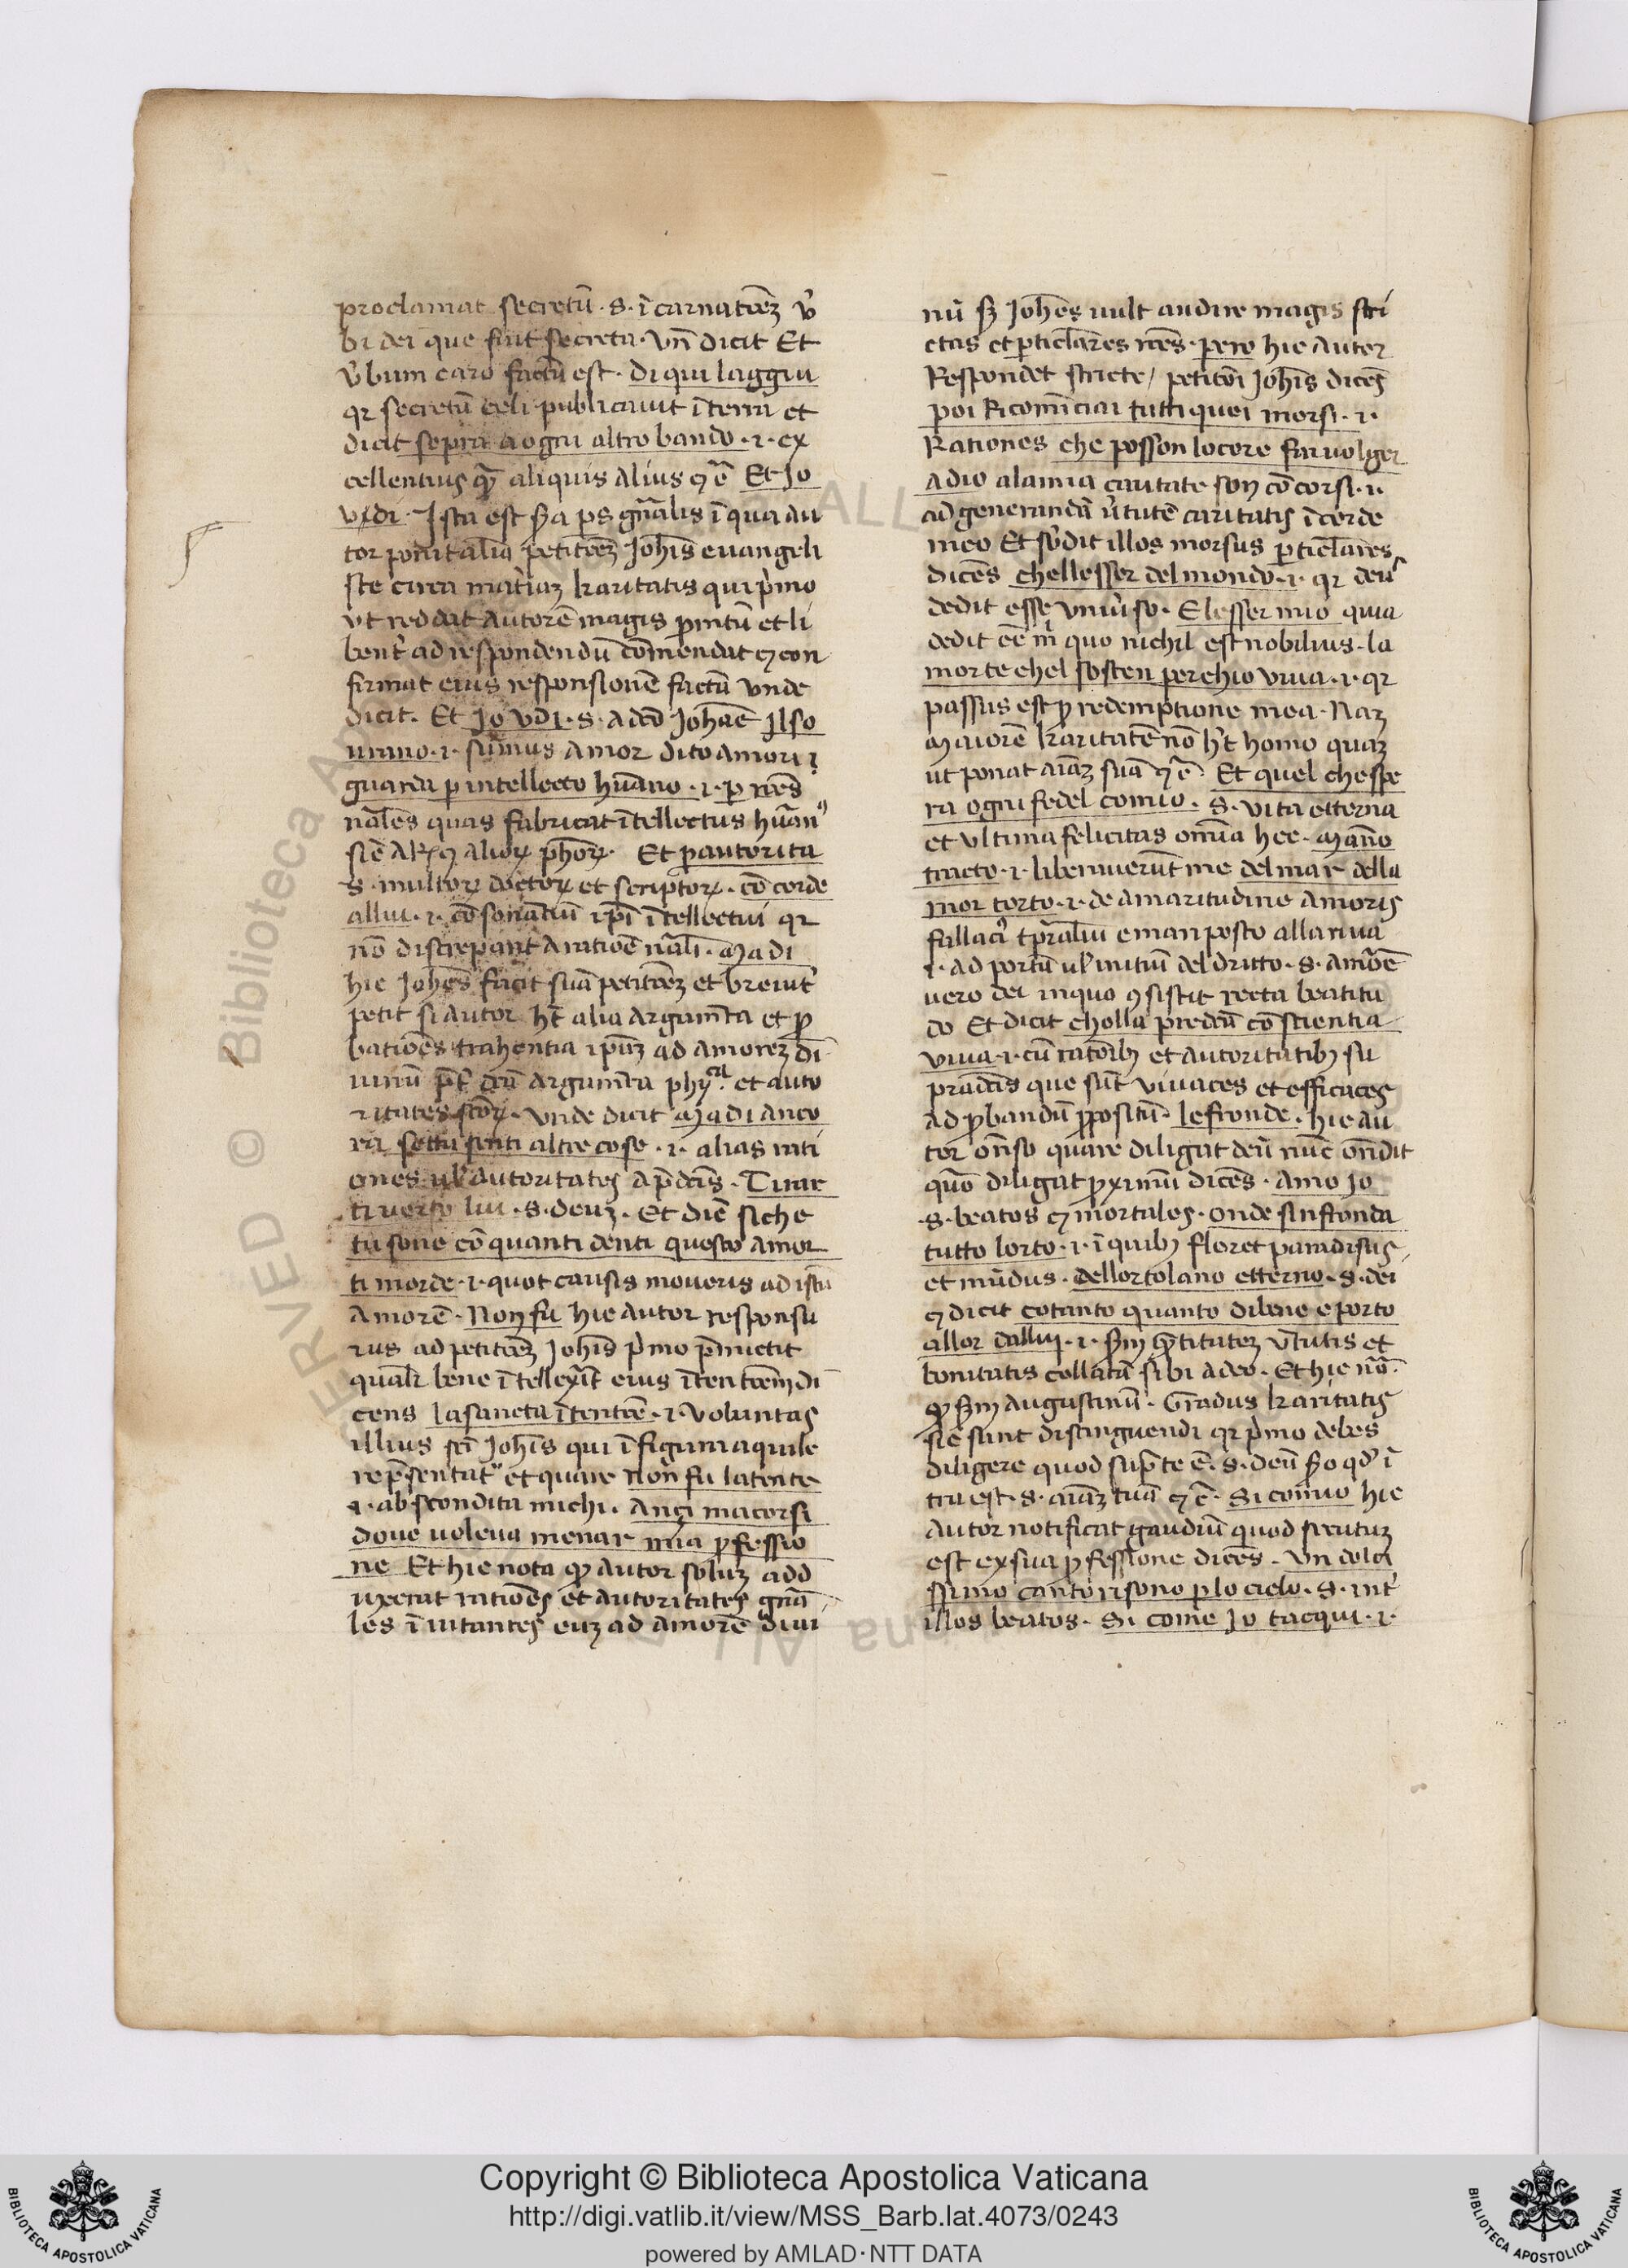 proclamat secretũ · s · ĩcarnatõez v̉
bi dei que fuit secreta · vñ dicit Et
v̉bum caro factũ est · di qui laggiu
qr secretũ celi publicavit ĩ terra et
dicit sopra a ogni altro bando · i · ex
cellentius q̃ aliquis alius ⁊ c̃ Et Jo
vdi · Ista est s̃a ps gñalis ĩ qua au
tor ponit aliã petitõez Joh̃is evangeli
ste circa matiaz karitatis qui p̉mo
vt reddat autorẽ magis pmtũ et li
bent̉ ad respondendũ cõmendat ⁊ con
firmat eius responsionẽ factã vnde
dicit · Et Jo vdi · s · a deo Joh̃ãe Il so
urano · i · sũmus amor di to amori ·
guarda p intellecto hũano · i · p rões
nãles quas fabricat ĩtellectus hũanꝰ
sic̃ aliorꝝ ph̃orꝝ · Et p autorita
s · multorꝝ doctorꝝ et scriptorꝝ · cõcorde
allui · i · cõsonãtiũ ip̃i ĩtellectui qr
nõ discrepant a ratiõe nãli · Ma di
hic Joh̃es facit suã petitõez et breuit̉
petit si autor h̃t alia argum̃ta et p
batiões trahentia ip̃uz ad amorez di
uinũ p̃t̉ argum̃ta phy et auto
ritates sc̃orꝝ · vnde dicit Ma di anco
ra se tu senti altre cose · i · alias rati
ones ul̉ autoritates a p̃dc̃is · Tirar
ti verso lui · s · deuz · Et dic̃ siche
tu sone cõ quanti denti questo amor
ti morde · i · quot causis moueris ad istũ
amorẽ · Non fu hic autor responsu
rus ad petitõez Joh̃is p̉mo p̃mictit
qualr̉ bene ĩtellexit eius ĩtentõem di
cens la sancta ĩtentõe · i · voluntas
illius sc̃i Joh̃is qui ĩ figura aquile
rep̃sentat² et quare non fu latente
i · abscondita michi · Anci macorsi
doue uoleua menar mia pfessio
ne Et hic nota q̃ autor soluz add
uxerat ratiões et autoritates gñã
les ĩuitantes euz ad amorẽ diui
nũ sz Joh̃es uult audire magis stri
ctas et pticlares rões · pero hic autor
Respondet stricte / petitõi Joh̃is dices̃
poi Ricomĩciai tutti quei morsi · i ·
Rationes che posson lo core far volger
a dio a la mia caritate son cõcorsi · i ·
ad generandã v̉tutẽ caritatis ĩ corde
meo Et s̉bdit illos morsus pticlares
dicẽs chellesser del mondo · i · qr deuˢ
dedit esse vniũso · E lesser mio quia
dedit cẽ m̉ quo nichil est nobilius · la
morte chel sosten perchio viua · i · qr
passus est p redemptione mea · Naz
Maiorẽ karitatẽ nõ h̃t homo quaz
ut ponat aĩaz suã ⁊ c̃ · Et quel che spe
ra ogni fedel comio · s · vita etterna
et vltima felicitas omĩa hec · Mãno
tracto · i · liberauerũt me del mar della
mor torto · i · de amaritudine amoris
fallacꝰ tp̃aliu e man posto alla riua
i · ad portũ ul̉ initiũ del dritto · s · amõre
uero dei in quo 9sistit recta beatitu
do Et dicit cholla predcã cõscientia
viua · i · cũ ratõibꝫ et autoritatibꝫ su
pradc̃is que sũt viuaces et efficaces
ad pbandũ ppositũ · le fronde · hic au
tor oñso quare diligat deũ nũc oñdit
quõ diligat pximũ dicẽs · amo Jo
· s · beatos ⁊ mortales · onde sinfronda
tutto lorto · i · ĩ quibꝫ floret paradisus
et mũdus · dellortolano etterno · s · dei
⁊ dicit cotanto quanto di bene e porto
allor dallui · i · s̃m q̃titatez v̉tutis et
bonitatis collatã sibi a deo · Et hic nõ ·
q̃ s̃m augustinũ · Gradus karitatis
sic sunt distinguendi qr p̉mo debes
diligere quod sup̃ te ẽ · s · deũ s̃o qd̉ ĩ
tra est · s · aĩaz tuã ⁊ c̃ · Si comio hic
autor notificat gaudiũ quod secutuz
est ex sua pfessione dicẽs · Vn dolci
ssimo canto risono p lo cielo · s · int̉
illos beatos · Si come Jo tacqui · i ·
Copyright © Biblioteca Apostolica Vaticana
http://digi.vatlib.it/view/MSS_Barb.lat.4073/0243
powered by AMLAD·NTT DATA
BIBLIOTECA APOSTOLICA VATICANA
BIBLIOTECA APOSTOLICA VATICANA